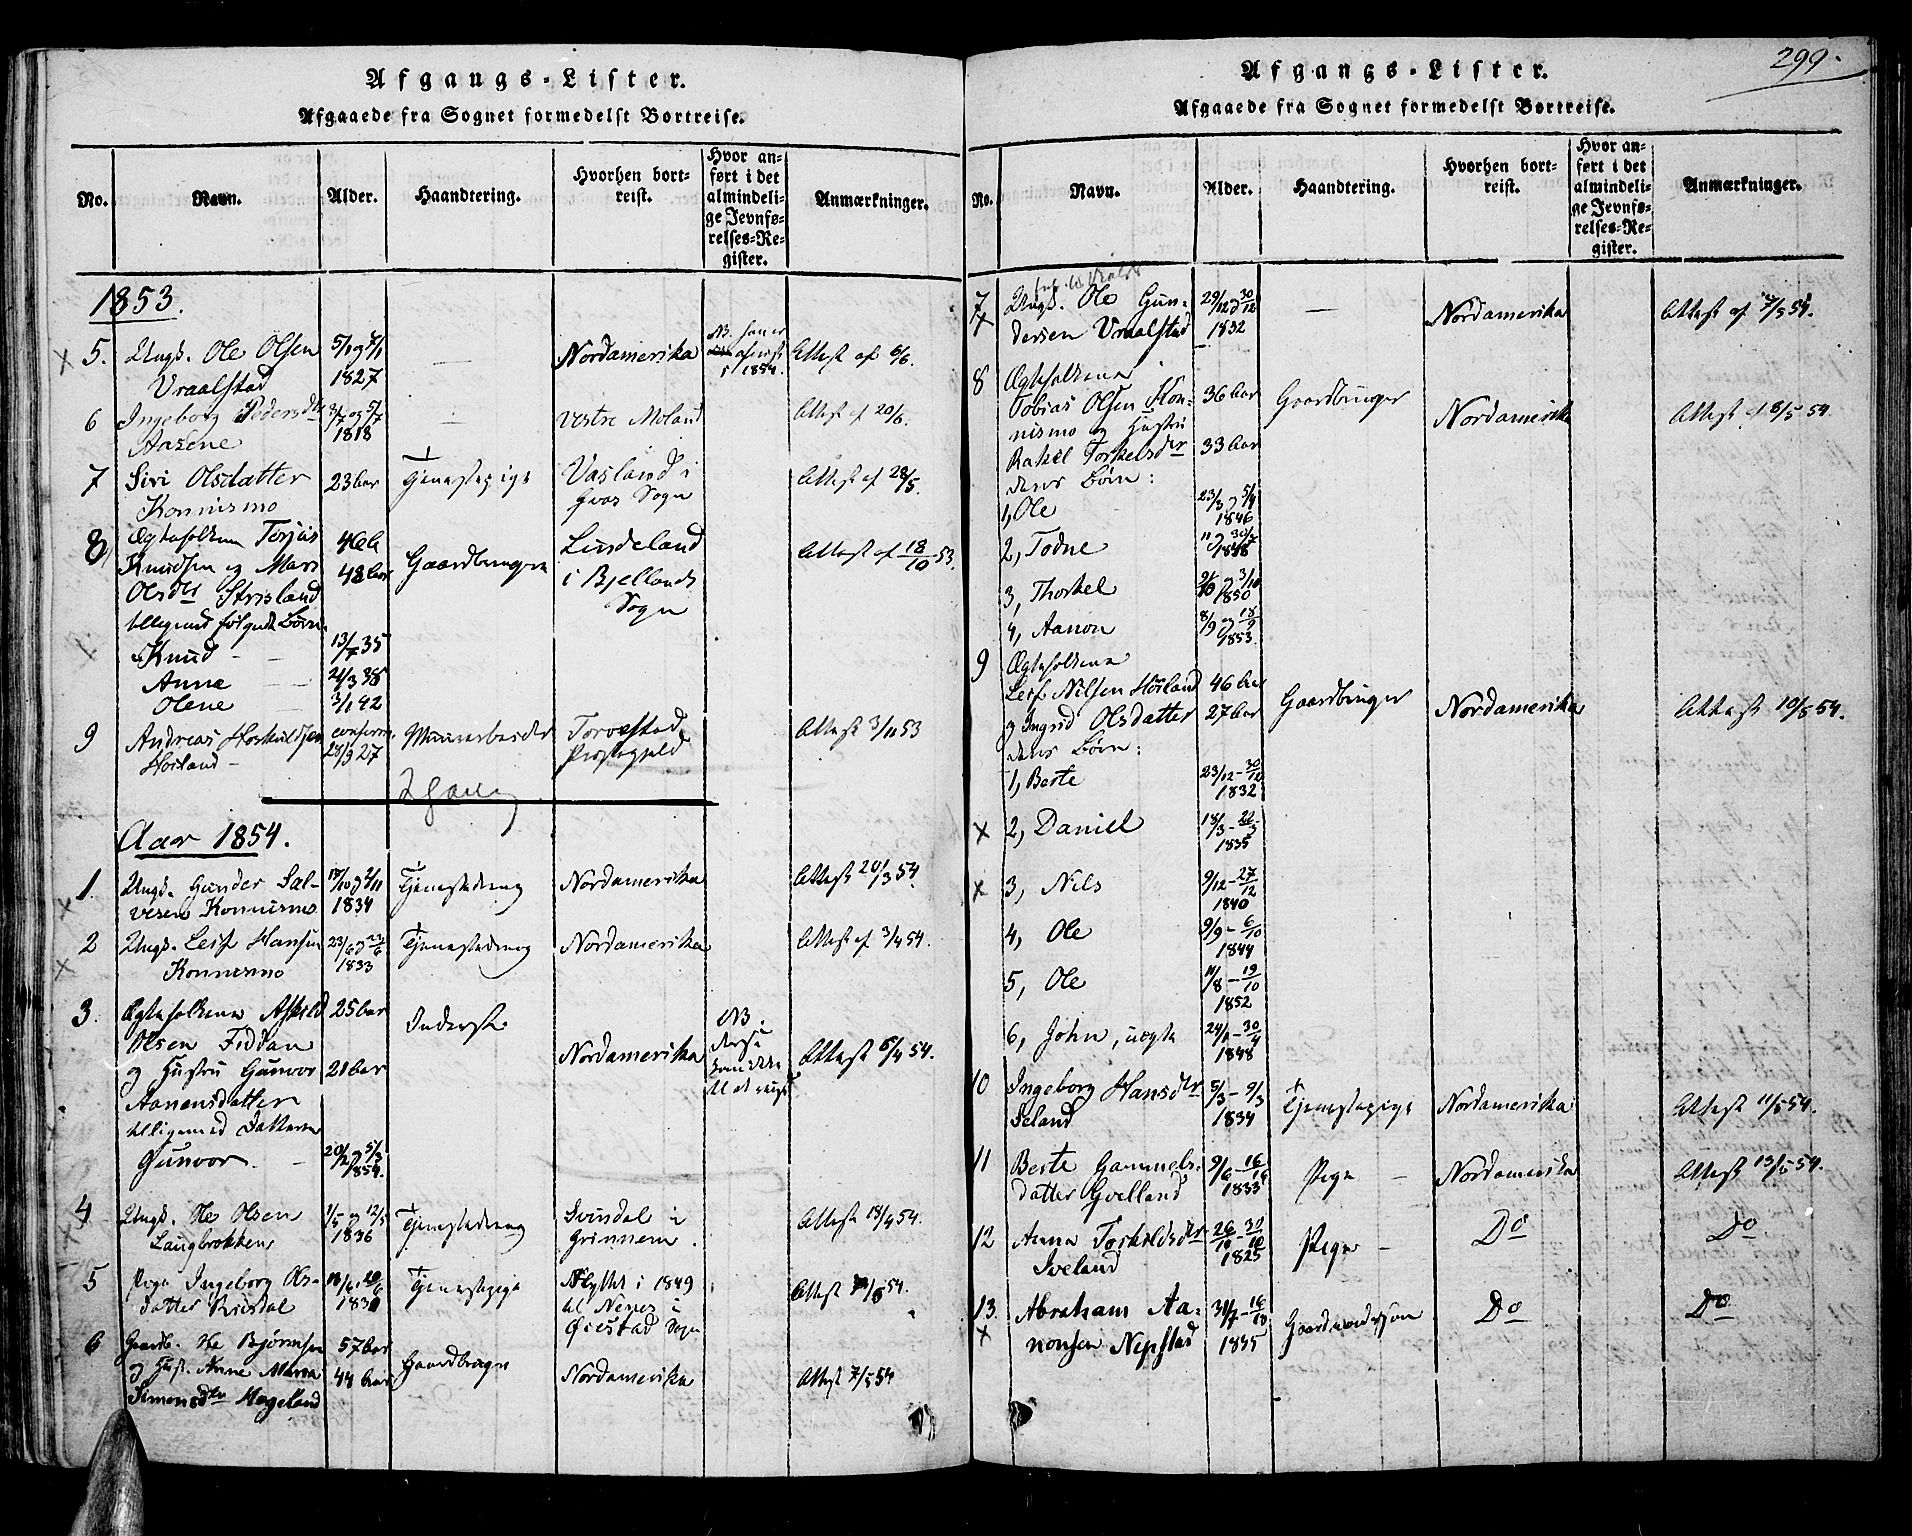 Afgangs-Lister.
Afgaaede fra Sognet formedelst Bortreise.
No.
Navn.
Alder.
Haandtering.
Hvorhen bort-
reist.
Hvor an-
ført i det
almindeli-
ge Jevnfø-
relses-Re-
gister.
Anmærkninger.
1853.
5. Ungk. Ole Olsen
Vraalstad
1827
—
Nordamerika
NB.
1854.
Attest af 8/6.
6 Ingeborg Pedersdtr
Aasene
3/7 og 5/7
1818
—
Vestre Moland
Attest af 20/6.
7 Siri Olsdatter
Konnismo
23 aar
Tjenestepige
Vasland i
Sogn
Attest af 28/5.
8 Ægtefolkene Torjus
Knudsen og Mari
Olsdtr Strisland
tilligemed følgende Børn
Knud
13/7 35
Anne
21/3 38
Olene
3/1 42
48 aar
Gaardbruger
Lindeland
i Bjellands
Sogn
Attest af 18/10 53.
9 Andreas
Høiland
28/9 27
Murarbeider
Torvestad
Præstegjeld
Attest 3/11 53
Aar 1854.
1. Ungk. Gunder Sal-
vesen Konnismo
1834
Tjenestedreng
Nordamerika
Attest 20/3 54.
2 Ungk. Leif Hansen
Konnismo
1833
Tjenestedreng
Nordamerika
Attest af 3/4 54.
3. Ægtefolkene Askild
Olsen Fiddan
og Hustru Gunvor
Aanensdatter
tilligemed Datteren
Gunvor.
25 aar
21 aar
20/2 og 5/3
1854.
Inderst
Nordamerika
NB.
Attest 5/4 54.
4 Ungk. Ole Olsen
Laugbrokken
1/5 og 12/5
1836
Tjenestedreng
Svindal i
Attest 18/4 54.
5 Pige Ingeborg Ols-
datter
Tjenestepige
Flyttet i 1849
til Nenes i
Øiestad Sogn
Attest
6 Gaardb. Ole Bjørnsen
og Hust. Anne Maria
Simonsdtr Hægeland
57 aar
44 aar
Gaardbruger
Nordamerika
Attest 7/5 54
299.
Afgangs-Lister.
Afgaaede fra Sognet formedelst Bortreise.
No.
Navn.
Alder.
Haandtering.
Hvorhen bort-
reist.
Hvor an-
ført i det
almindeli-
ge Jevnfø-
relses-Re-
gister.
Anmærkninger.
7 Ungk. Ole Gun-
dersen Vraalstad
29/12 og 30/12
1832
—
Nordamerika
Attest af 7/5 54.
8 Ægtefolkene
Tobias Olsen Kon-
nismo og Hustru
Rakel Torkelsdtr
deres Børn:
36 aar
33 aar
Gaardbruger
Nordamerika
Attest af 8/5 54.
1, Ole
23/3 og 5/4
1846
2, Todne
1848
3, Thorkel
1850
4, Aanon
8/9 og 18/9
1853.
9 Ægtefolkene
Leif Nilsen Høiland
og Ingrid Olsdatter
deres Børn:
46 aar
27 aar
Gaardbruger
Nordamerika
Attest 10/5 54.
1, Berte
23/12 - 30/12
1832
2, Daniel
18/3 - 22/3
1835
3, Nils
9/12 - 27/12
1840
4, Ole
9/9 - 6/10
1844
5, Ole
11/8 - 19/10
1852
6, John, uægte
1848
10 Ingeborg Hansdtr
Seland
5/3 - 9/3
1834
Tjenestepige
Nordamerika
Attest 11/5 54.
11 Berte Gammels-
datter Gvelland
1833
Pige
—
Nordamerika
Attest 13/5 54.
12 Anna Torkildsdtr
Iveland
26/10 - 30/10
1825
Pige
—
Do
Do
13. Abraham Aa-
nonsen Nepstad
1835
Gaardmandssøn
Do
Do